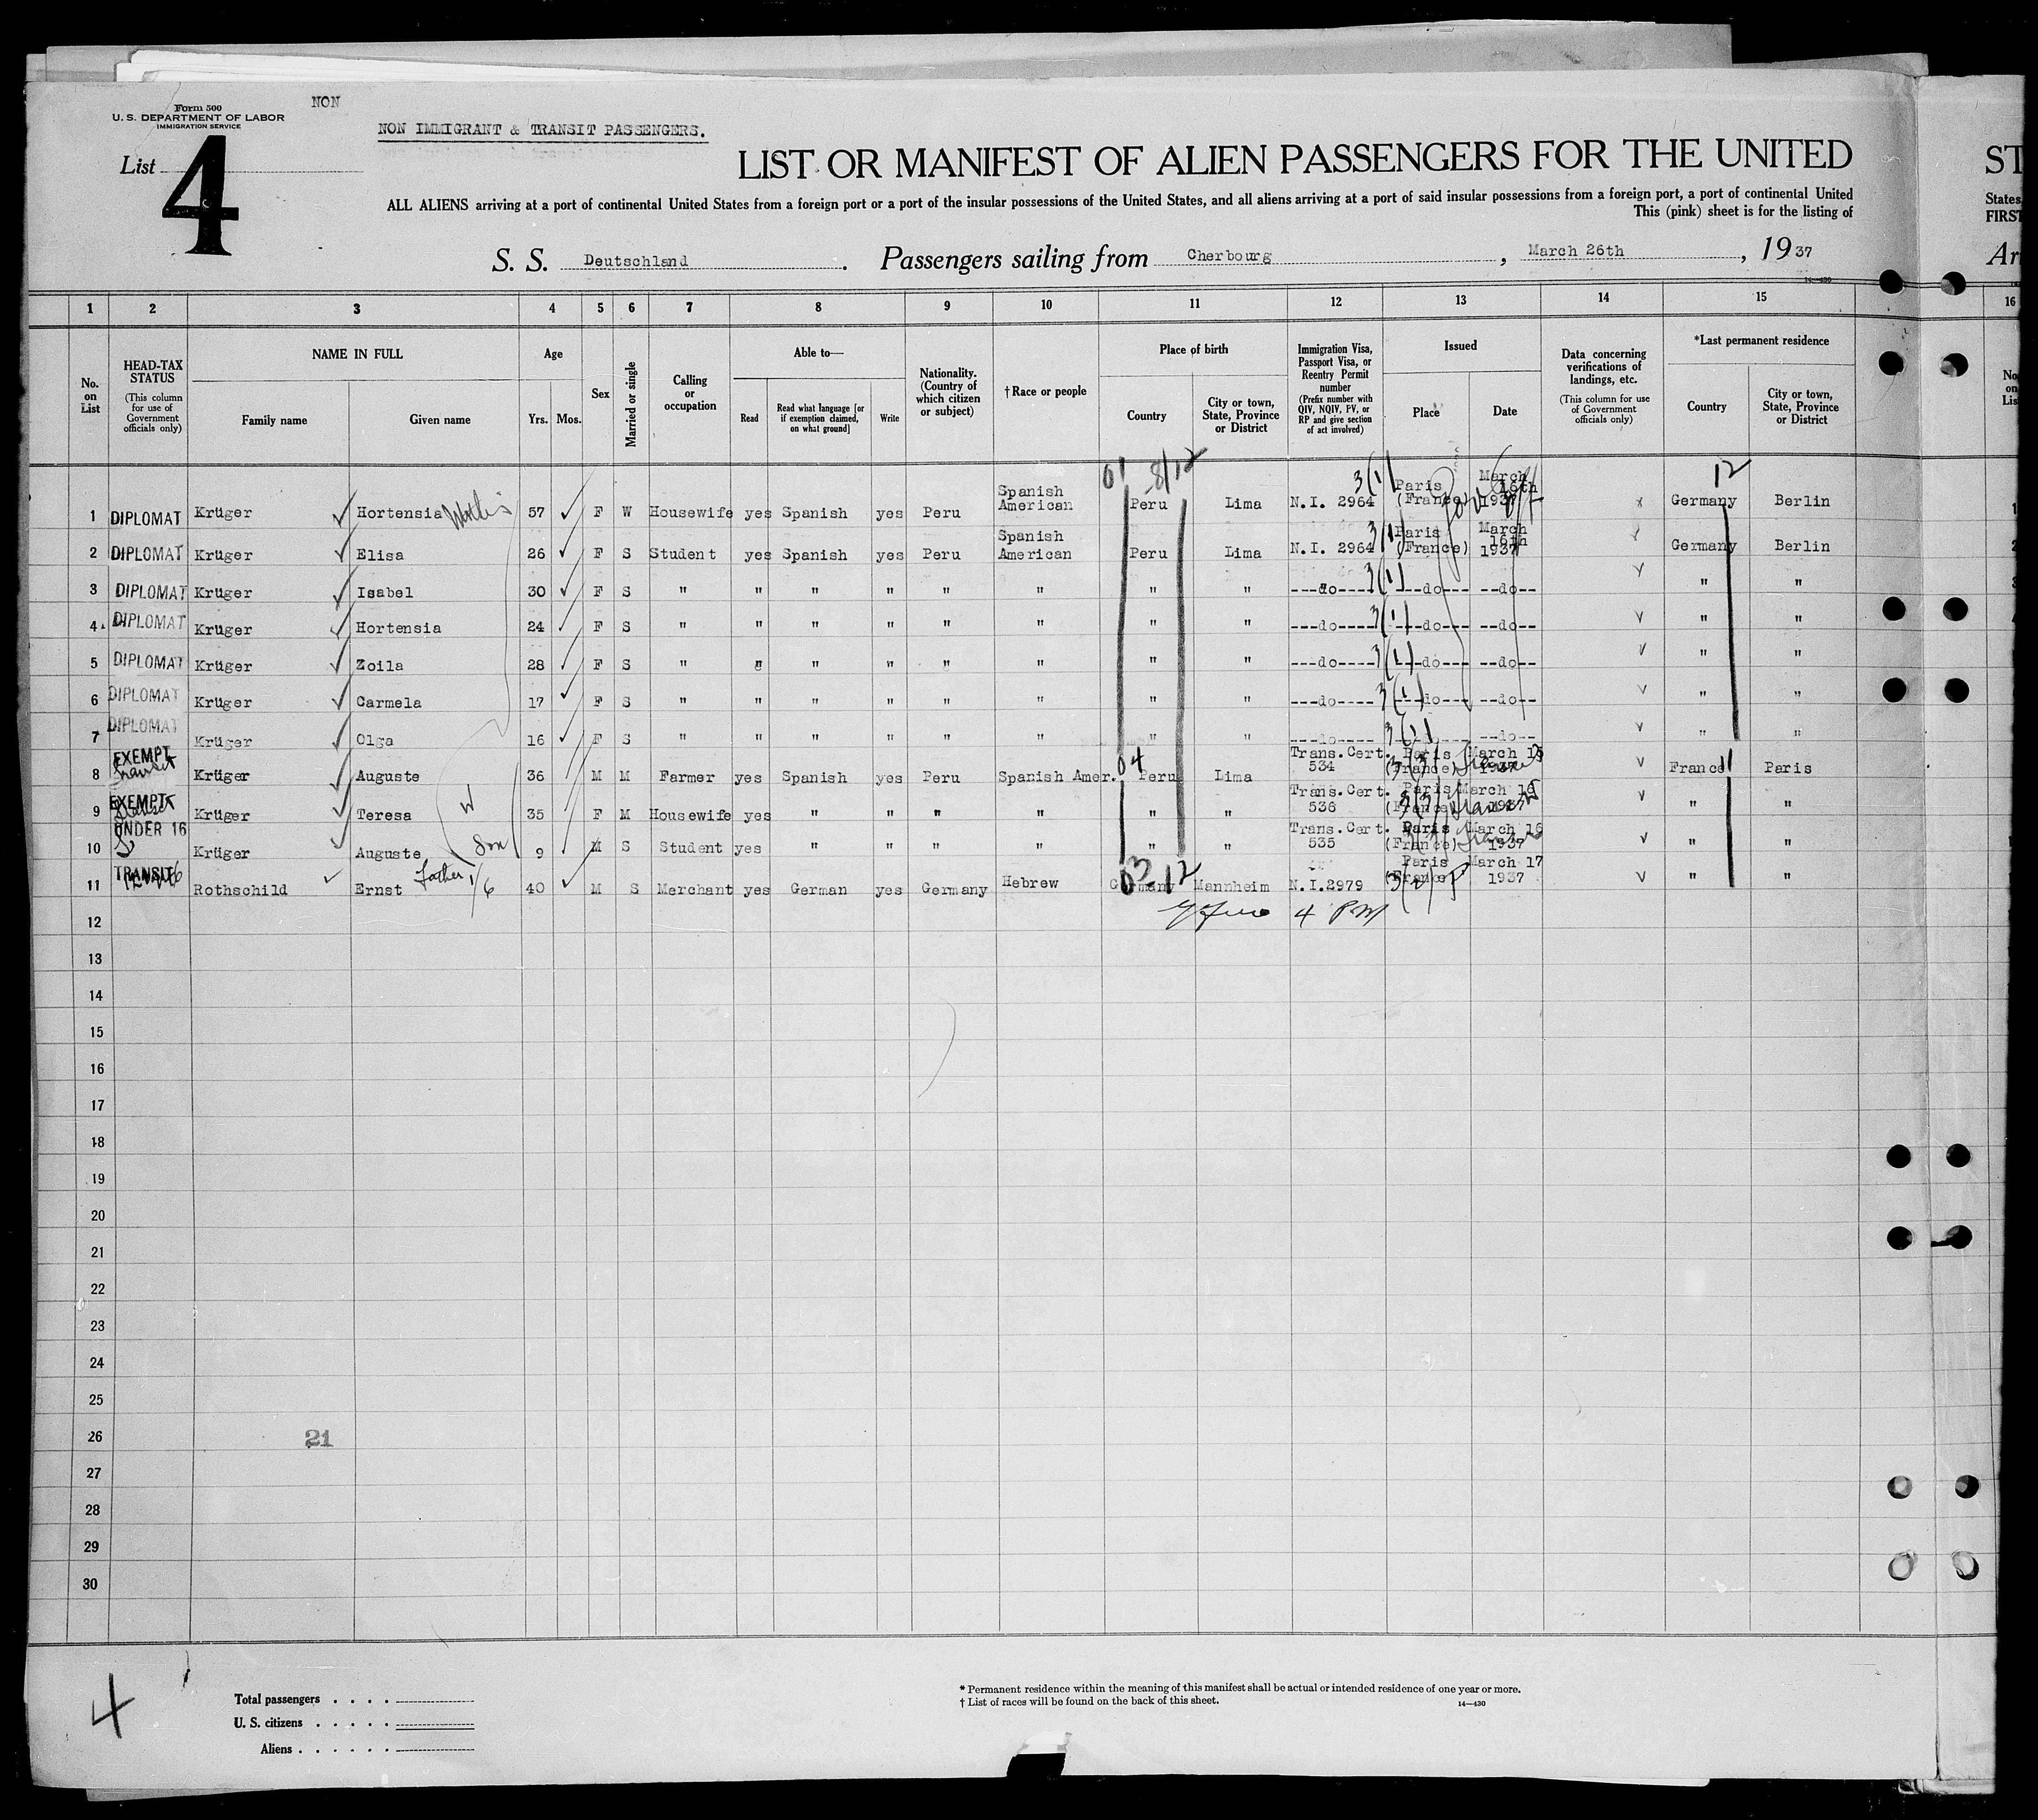 Form 500
U. S. DEPARTMENT OF LABOR
IMMIGRATION SERVICE
NON
NON IMMIGRANT & TRANSIT PASSENGERS.
List 4
LIST OR MANIFEST OF ALIEN PASSENGERS FOR THE UNITED
ST
ALL ALIENS arriving at a port of continental United States from a foreign port or a port of the insular possessions of the United States, and all aliens arriving at a port of said insular possessions from a foreign port, a port of continental United
States
This (pink) sheet is for the listing of
FIRST
S. S. Deutschland. Passengers sailing from Cherbourg, March 26th, 1937
Ar
14—430
1 2 3 4 5 6 7 8 9 10 11 12 13 14 15 16
No. on List
HEAD-TAX STATUS (This column for use of Government officials only)
NAME IN FULL
Family name
Given name
Age
Yrs. Mos.
Sex
Married or single
Calling or occupation
Able to—
Read
Read what language [or if exemption claimed, on what ground]
Write
Nationality. (Country of which citizen or subject)
† Race or people
Place of birth
Country
City or town, State, Province or District
Immigration Visa, Passport Visa, or Reentry Permit number (Prefix number with QIV, NQIV, PV, or RP and give section of act involved)
Issued
Place
Date
Data concerning verifications of landings, etc. (This column for use of Government officials only)
*Last permanent residence
Country
City or town, State, Province or District
No. on List
01 8/12 12
1 DIPLOMAT Krüger Hortensia 57 F W Housewife yes Spanish yes Peru Spanish American Peru Lima N.I. 2964 3(1) Paris (France) March 16th 1937 Germany Berlin
2 DIPLOMAT Krüger Elisa 26 F S Student yes Spanish yes Peru Spanish American Peru Lima N.I. 2964 3(1) Paris (France) March 16th 1937 Germany Berlin
3 DIPLOMAT Krüger Isabel 30 F S " " " " " " " " ---do---- 3(1) --do--- --do-- " "
4 DIPLOMAT Krüger Hortensia 24 F S " " " " " " " " ---do---- 3(1) --do--- --do-- " "
5 DIPLOMAT Krüger Zoila 28 F S " " " " " " " " ---do---- 3(1) --do--- --do-- " "
6 DIPLOMAT Krüger Carmela 17 F S " " " " " " " " ---do---- 3(1) --do--- --do-- " "
7 DIPLOMAT Krüger Olga 16 F S " " " " " " " " ---do---- 3(1) --do-- " "
04 11
8 EXEMPT Transit Krüger Auguste 36 M M Farmer yes Spanish yes Peru Spanish Amer. Peru Lima Trans.Cert. 534 Paris (France) 3(3) March 1937 France Paris
9 EXEMPT Krüger Teresa W 35 F M Housewife yes " " " " " " Trans.Cert. 536 Paris (France) 3(3) March 16 1937 " "
10 UNDER 16 Krüger Auguste Son 9 M S Student yes " " " " " " Trans.Cert. 535 Paris (France) March 16 1937 " "
03-12
11 TRANSIT Rothschild Ernst Father 1/6 40 M S Merchant yes German yes Germany Hebrew Germany Mannheim N.I.2979 Paris (France) 3(2) March 17 1937 " "
4 PM
12
13
14
15
16
17
18
19
20
21
22
23
24
25
26
21
27
28
29
30
4
Total passengers . . . .
U. S. citizens . . . . .
Aliens . . . . . .
* Permanent residence within the meaning of this manifest shall be actual or intended residence of one year or more.
† List of races will be found on the back of this sheet.
14—430